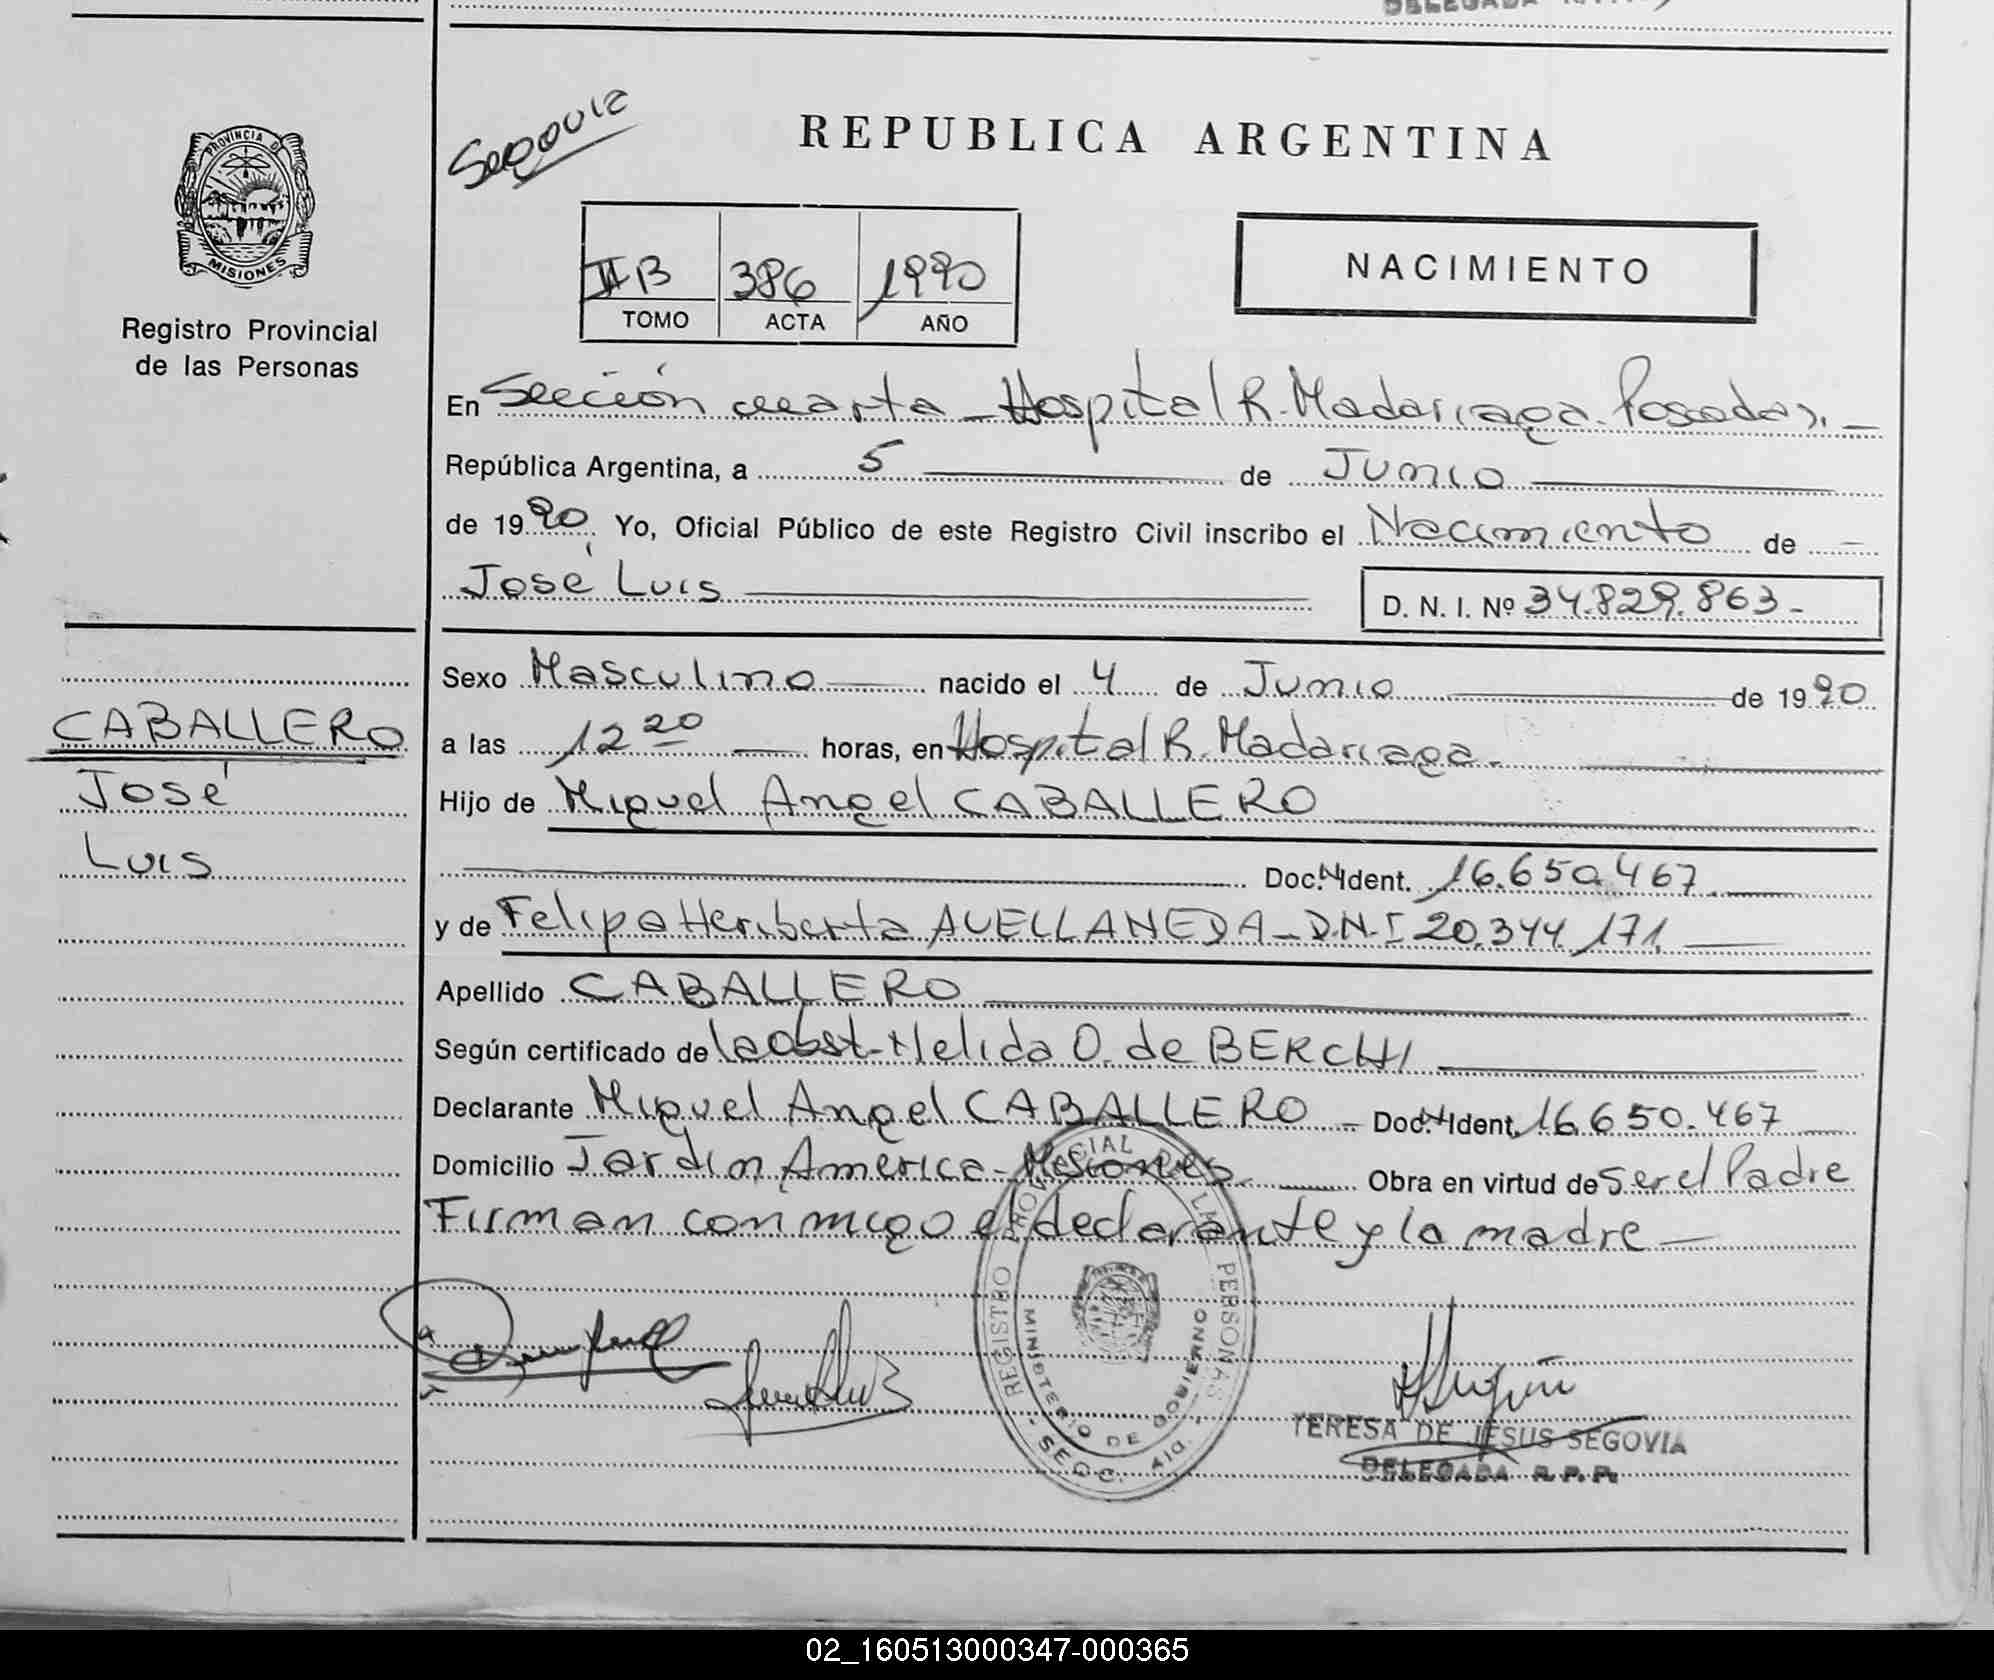 DELEGADA
PROVINCIA D
MISIONES
Registro Provincial
de las Personas
Segovia
REPUBLICA ARGENTINA
II B 386 1990
TOMO ACTA AÑO
NACIMIENTO
En Sección cuarta - Hospital R. Madariaga. Posadas. -
República Argentina, a 5 de Junio
de 1990. Yo, Oficial Público de este Registro Civil inscribo el Nacimiento de -
José Luis D. N. I. Nº 34.829.863-
Sexo Masculino nacido el 4 de Junio de 1990
CABALLERO
a las 12 20 horas, en Hospital R. Madariaga.
José
Hijo de Miguel Angel CABALLERO
Luis
Doc. N Ident. 16.650.467
y de Felipa Heriberta AVELLANEDA - D.N.I 20.344.171.
Apellido CABALLERO
Según certificado de la Obst. Nelida O. de BERCHI
Declarante Miguel Angel CABALLERO - Doc. N Ident. 16.650.467
Domicilio Jardin America - Misiones. Obra en virtud de Ser el Padre
Firman conmigo el declarante y la madre -
REGISTRO PROVINCIAL DE LAS PERSONAS
MINISTERIO DE GOBIERNO
- SECC. 4ta. -
TERESA DE JESUS SEGOVIA
DELEGADA R.P.P.
02_160513000347-000365